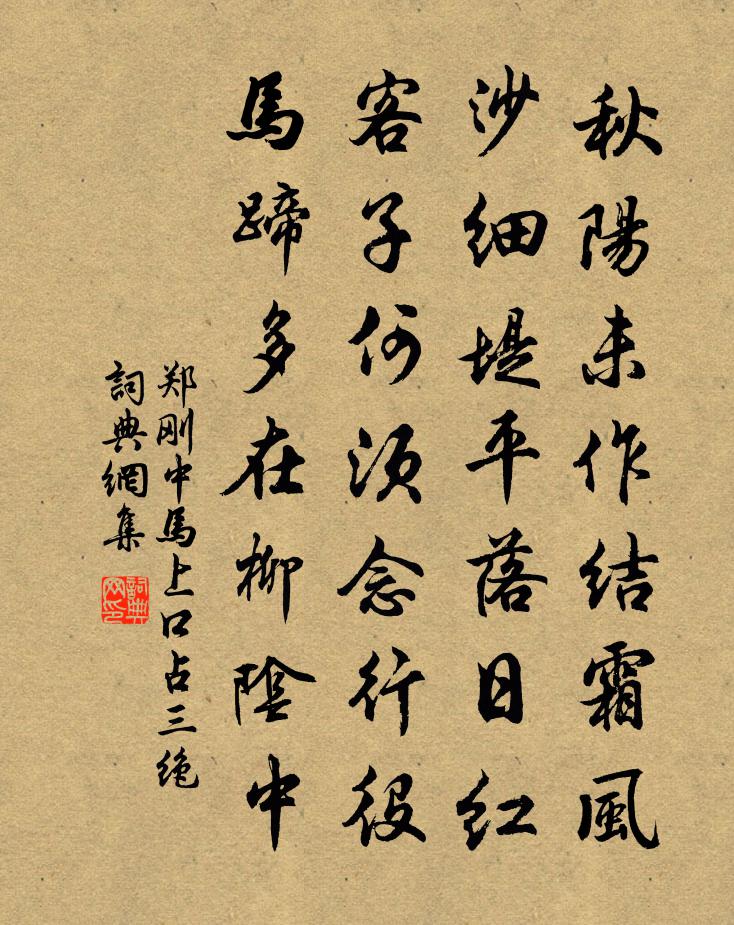 秋陽未作结霜風
沙细堤平落日红
客子何須念行役
馬蹄多在柳陰中
郑刚中馬上口占三绝
詞典網集
詞典网印